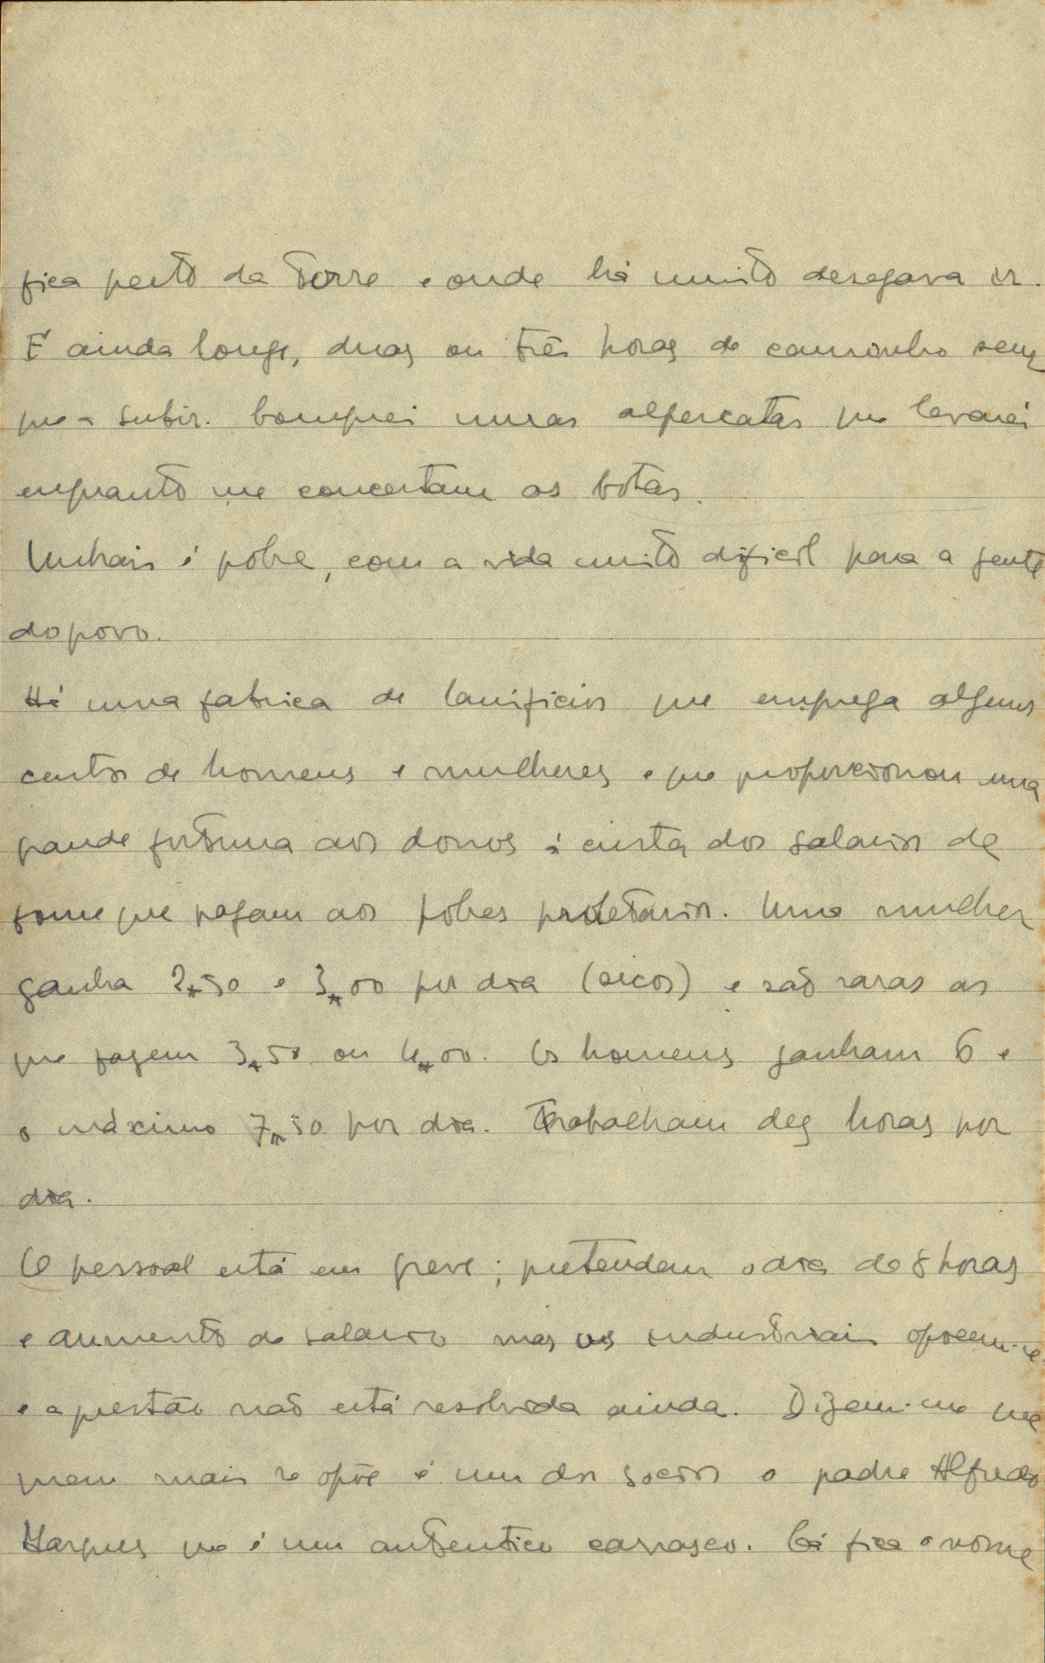 fica perto da Torre e onde há muito desejava ir.
É ainda longe, duas ou três horas de caminho sem
que a subir. Comprei umas alpercatas que levarei
enquanto me concertam as botas.
Unhais é pobre, com a vida muito dificil para a gente
do povo.
Há uma fabrica de lanificios que emprega alguns
centos de homens e mulheres e que proporcionou uma
grande fortuna aos donos á custa dos salarios de
fome que pagam aos pobres proletarios. Uma mulher
ganha 2$50 e 3$00 por dia (sicos) e são raras as
que fazem 3$50 ou 4$00. Os homens ganham 6 e
o máximo 7$50 por dia. Trabalham dez horas por
dia.
O pessoal está em greve; pretendem o dia de 8 horas
e aumento de salario mas os industriais opoem-se
e a questão não está resolvida ainda. Dizem-me que
quem mais se opõe é um dos socios o padre Alfredo
Marques que é um autentico carrasco. Cá fica o nome